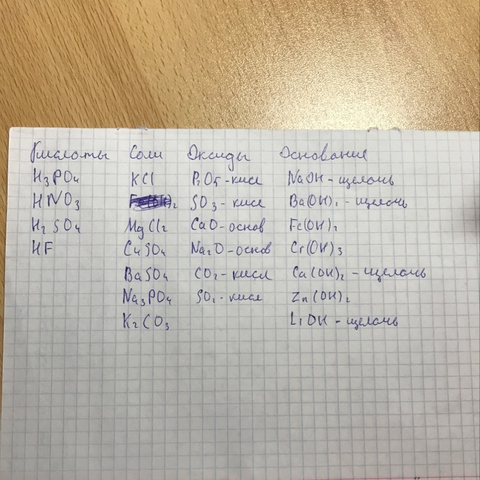 Кислоты Соли Оксиды Основание
H₃PO₄ KCl P₂O₅-кисл NaOH-щелочь
HNO₃ SO₃-кисл Ba(OH)₂-щелочь
H₂SO₄ MgCl₂ CaO-основ Fe(OH)₂
HF CuSO₄ Na₂O-основ Cr(OH)₃
BaSO₄ CO₂-кисл Ca(OH)₂-щелочь
Na₃PO₄ SO₂-кисл Zn(OH)₂
K₂CO₃ LiOH-щелочь